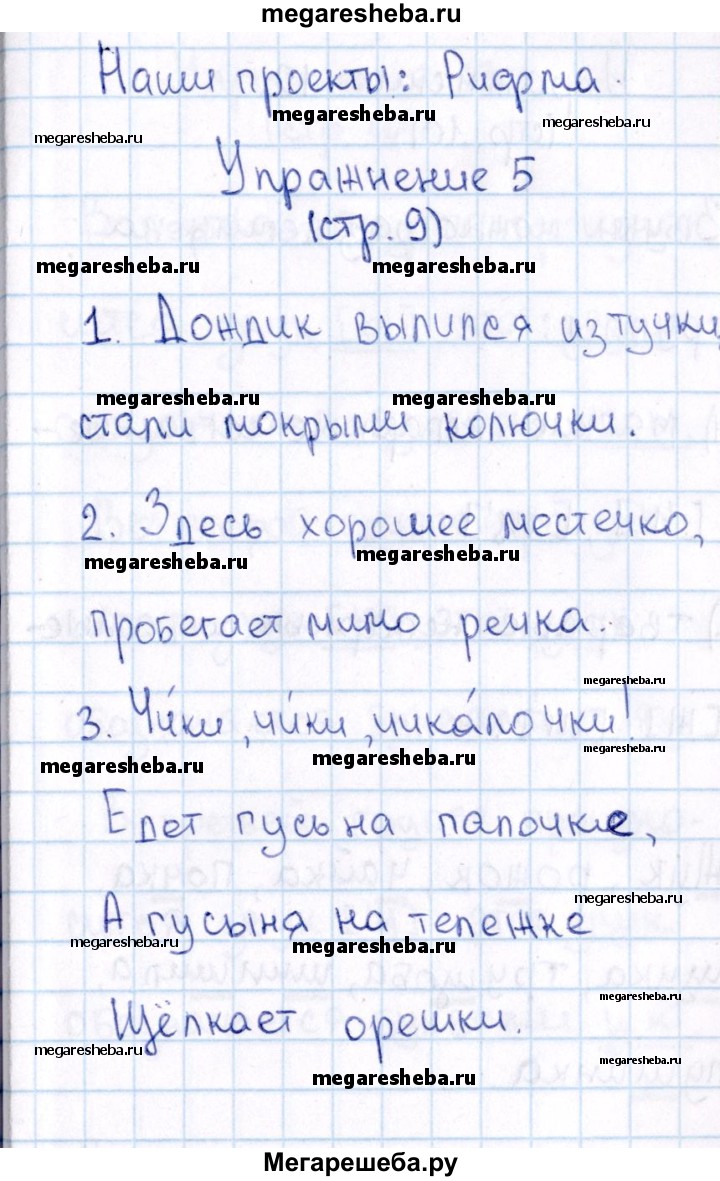 megaresheba.ru
Наши проекты: Рифма.
megaresheba.ru megaresheba.ru megaresheba.ru
Упражнение 5
(стр. 9)
megaresheba.ru megaresheba.ru
1. Дождик вылился из тучки,
megaresheba.ru megaresheba.ru
стали мокрыми колючки.
2. Здесь хорошее местечко,
megaresheba.ru megaresheba.ru
пробегает мимо речка.
megaresheba.ru
3. Чи́ки, чи́ки, чика́лочки!
megaresheba.ru megaresheba.ru megaresheba.ru
Едет гусь на палочке,
megaresheba.ru
А гусыня на тележке
megaresheba.ru megaresheba.ru
Щёлкает орешки.
megaresheba.ru
megaresheba.ru megaresheba.ru
megaresheba.ru
Мегарешеба.ру